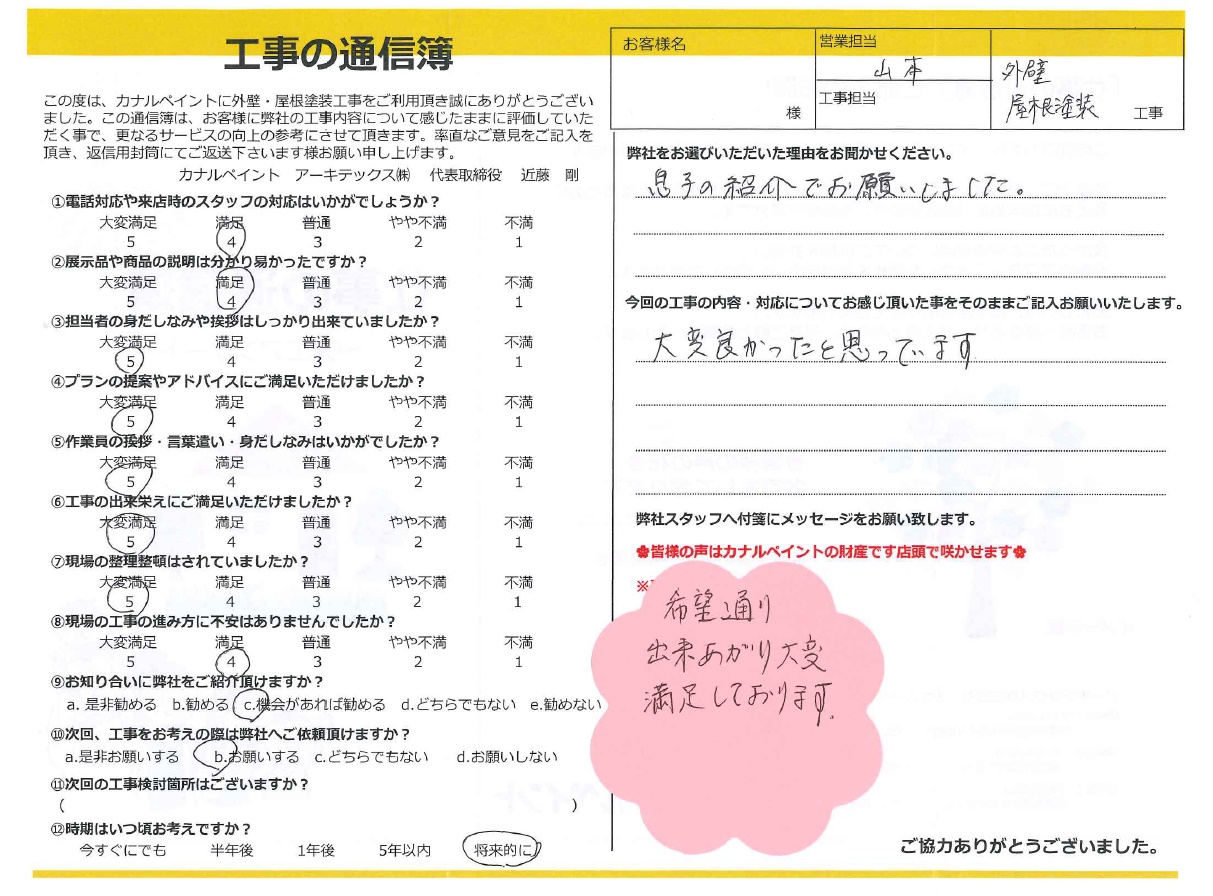 工事の通信簿
この度は、カナルペイントに外壁・屋根塗装工事をご利用頂き誠にありがとうござい
ました。この通信簿は、お客様に弊社の工事内容について感じたままに評価していた
だく事で、更なるサービスの向上の参考にさせて頂きます。率直なご意見をご記入を
頂き、返信用封筒にてご返送下さいます様お願い申し上げます。
カナルペイント アーキテックス㈱ 代表取締役 近藤 剛
①電話対応や来店時のスタッフの対応はいかがでしょうか？
大変満足 満足 普通 やや不満 不満
5 4 3 2 1
②展示品や商品の説明は分かり易かったですか？
大変満足 満足 普通 やや不満 不満
5 4 3 2 1
③担当者の身だしなみや挨拶はしっかり出来ていましたか？
大変満足 満足 普通 やや不満 不満
5 4 3 2 1
④プランの提案やアドバイスにご満足いただけましたか？
大変満足 満足 普通 やや不満 不満
5 4 3 2 1
⑤作業員の挨拶・言葉遣い・身だしなみはいかがでしたか？
大変満足 満足 普通 やや不満 不満
5 4 3 2 1
⑥工事の出来栄えにご満足いただけましたか？
大変満足 満足 普通 やや不満 不満
5 4 3 2 1
⑦現場の整理整頓はされていましたか？
大変満足 満足 普通 やや不満 不満
5 4 3 2 1
⑧現場の工事の進み方に不安はありませんでしたか？
大変満足 満足 普通 やや不満 不満
5 4 3 2 1
⑨お知り合いに弊社をご紹介頂けますか？
a. 是非勧める b.勧める c.機会があれば勧める d.どちらでもない e.勧めない
⑩次回、工事をお考えの際は弊社へご依頼頂けますか？
a.是非お願いする b.お願いする c.どちらでもない d.お願いしない
⑪次回の工事検討箇所はございますか？
( )
⑫時期はいつ頃お考えですか？
今すぐにでも 半年後 1年後 5年以内 将来的に
お客様名
様
営業担当
山本
工事担当
外壁
屋根塗装 工事
弊社をお選びいただいた理由をお聞かせください。
息子の紹介でお願いしました。
今回の工事の内容・対応についてお感じ頂いた事をそのままご記入お願いいたします。
大変良かったと思っています
弊社スタッフへ付箋にメッセージをお願い致します。
✿皆様の声はカナルペイントの財産です店頭で咲かせます✿
※
希望通り
出来あがり大変
満足しております。
ご協力ありがとうございました。